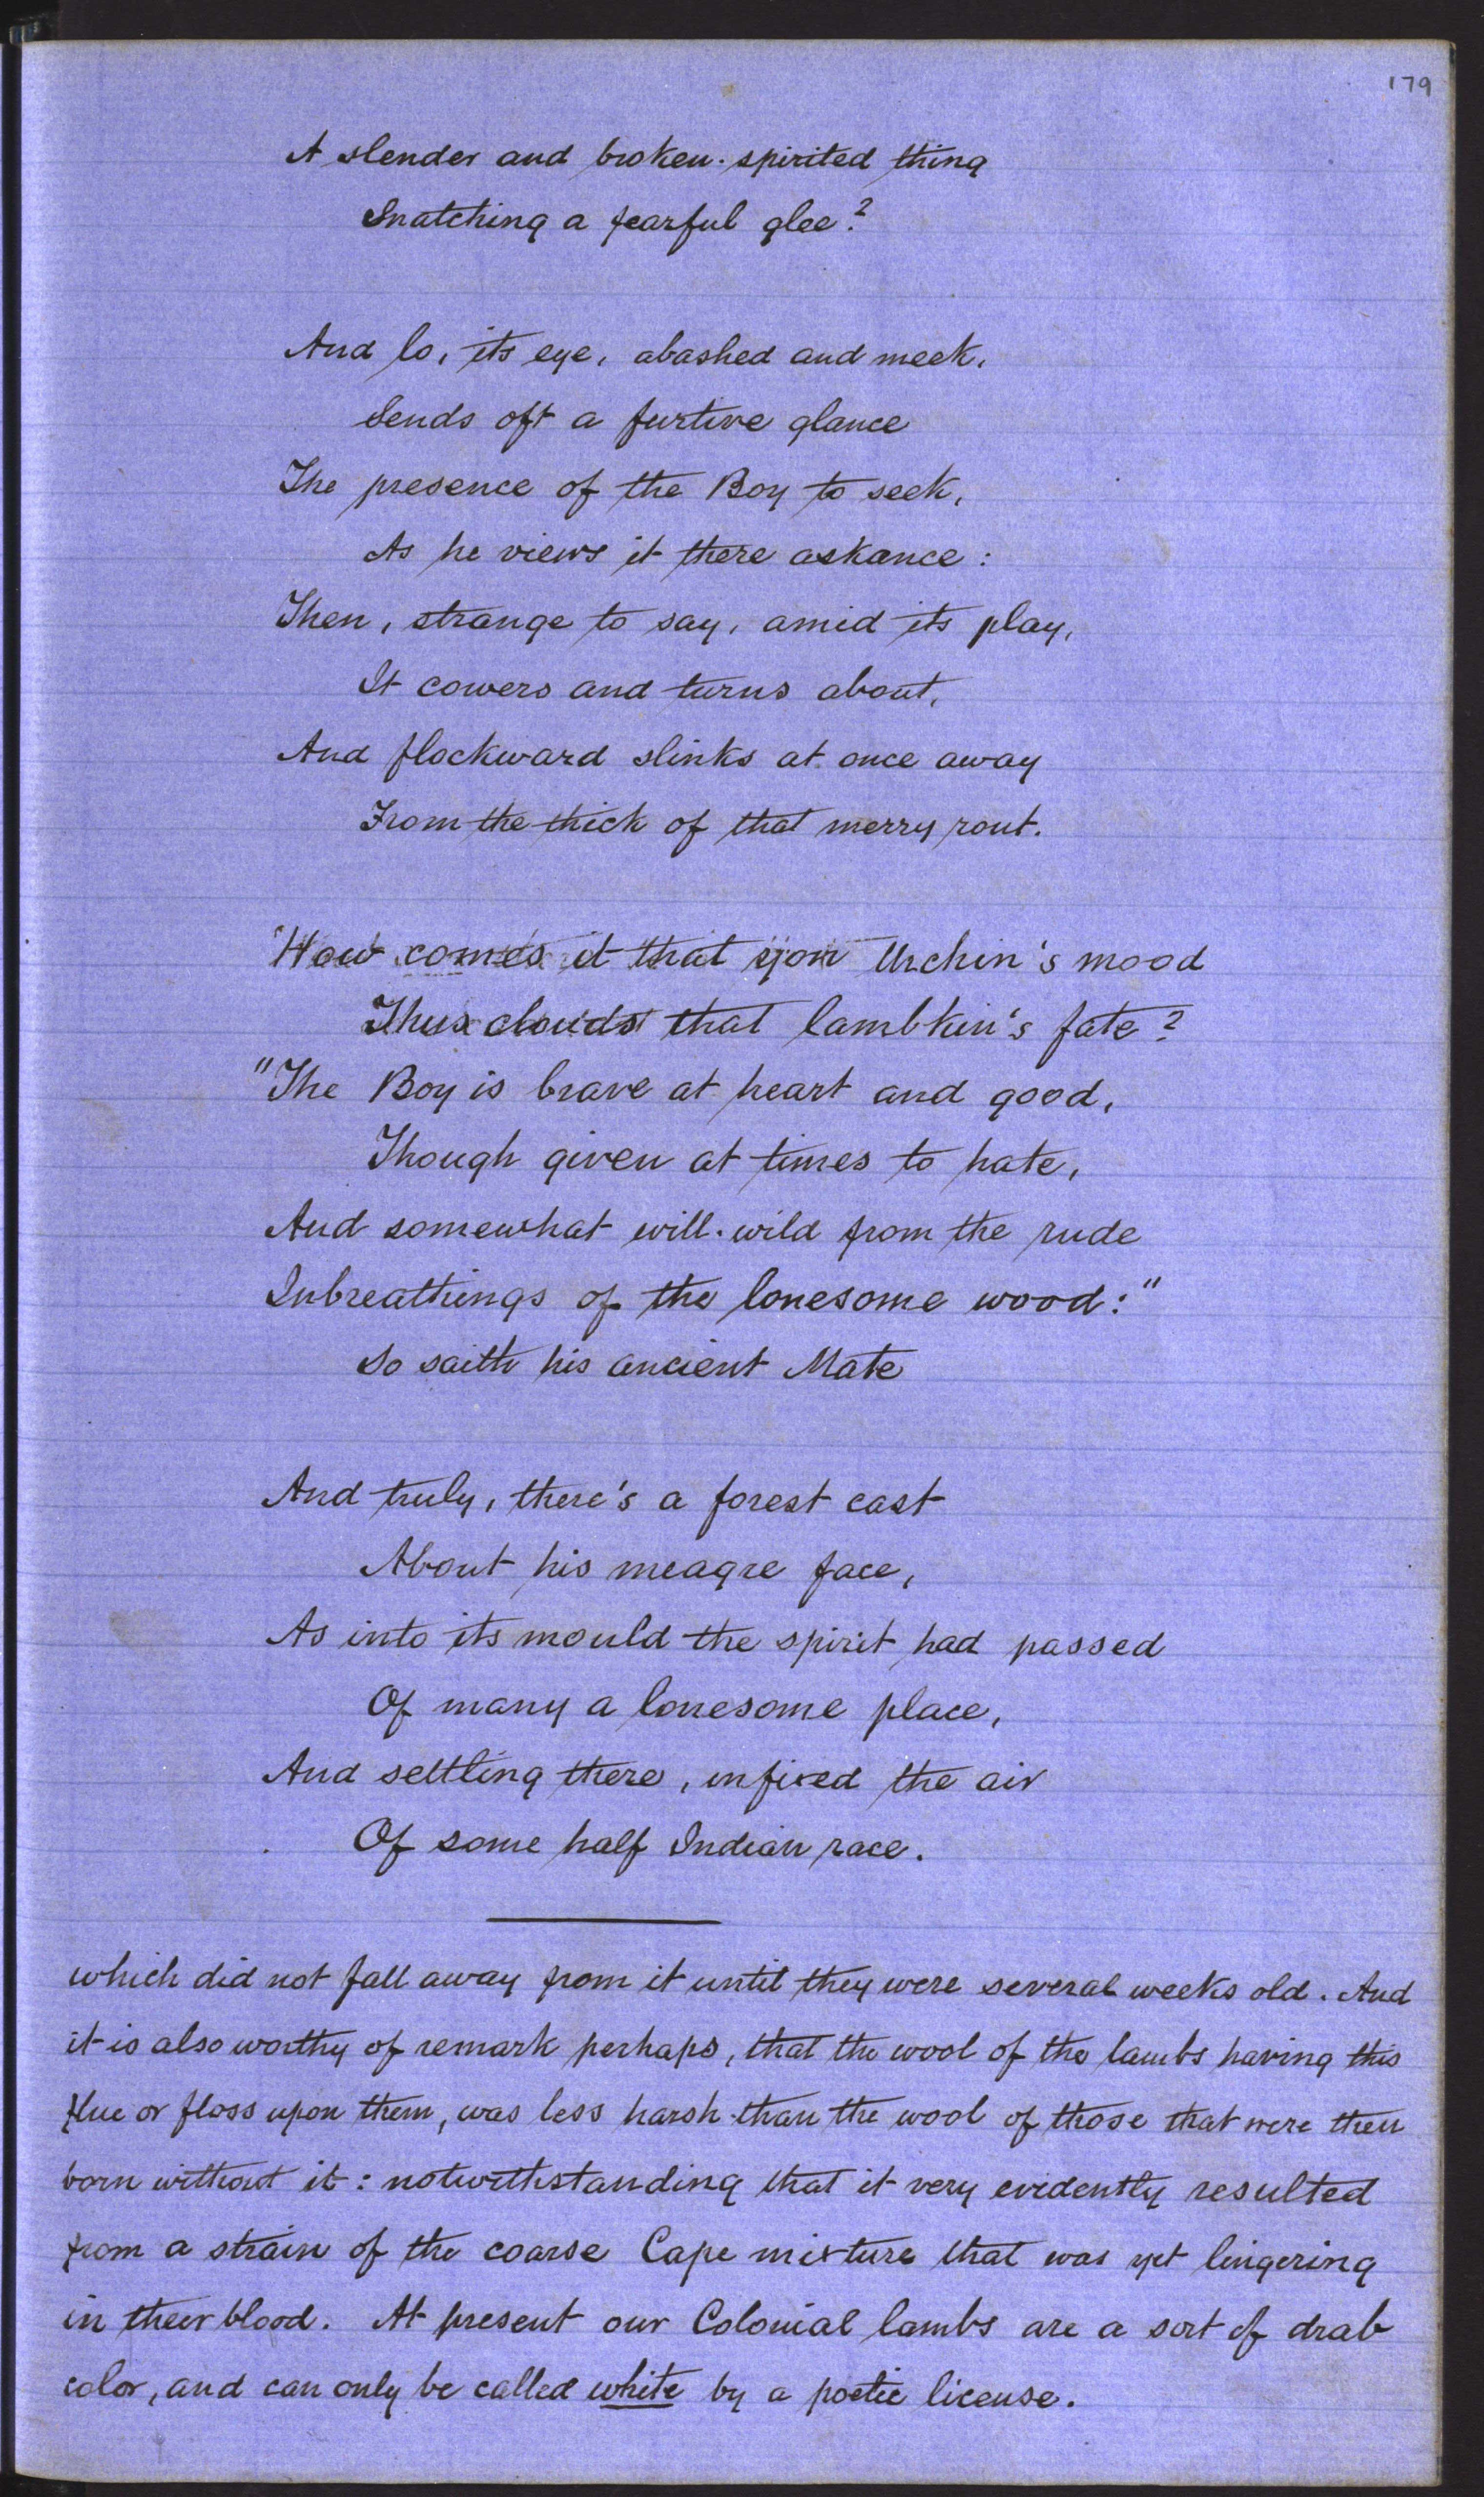 179
A slender and broken-spirited thing
Snatching a fearful glee?
And lo, its eye, abashed and meek,
Sends oft a furtive glance
The presence of the Boy to seek,
As he views it there askance:
Then, strange to say, amid its play,
It cowers and turns about,
And flockward slinks at once away
From the thick of that merry rout.
"How comes it that yon Urchin's mood
Thus clouds that lambkin's fate?
"The Boy is brave at heart and good,
Though given at times to hate,
And somewhat will-wild from the rude
Inbreathings of the lonesome wood:"
So saith his ancient Mate
And truly, there's a forest cast
About his meagre face,
As into its mould the spirit had passed
Of many a lonesome place,
And settling there, infixed the air
Of some half Indian race.
which did not fall away from it until they were several weeks old. And
it is also worthy of remark perhaps, that the wool of the lambs having this
flue or floss upon them, was less harsh than the wool of those that were then
born without it: notwithstanding that it very evidently resulted
from a strain of the coarse Cape mixture that was yet lingering
in their blood. At present our Colonial lambs are a sort of drab
color, and can only be called white by a poetic license.